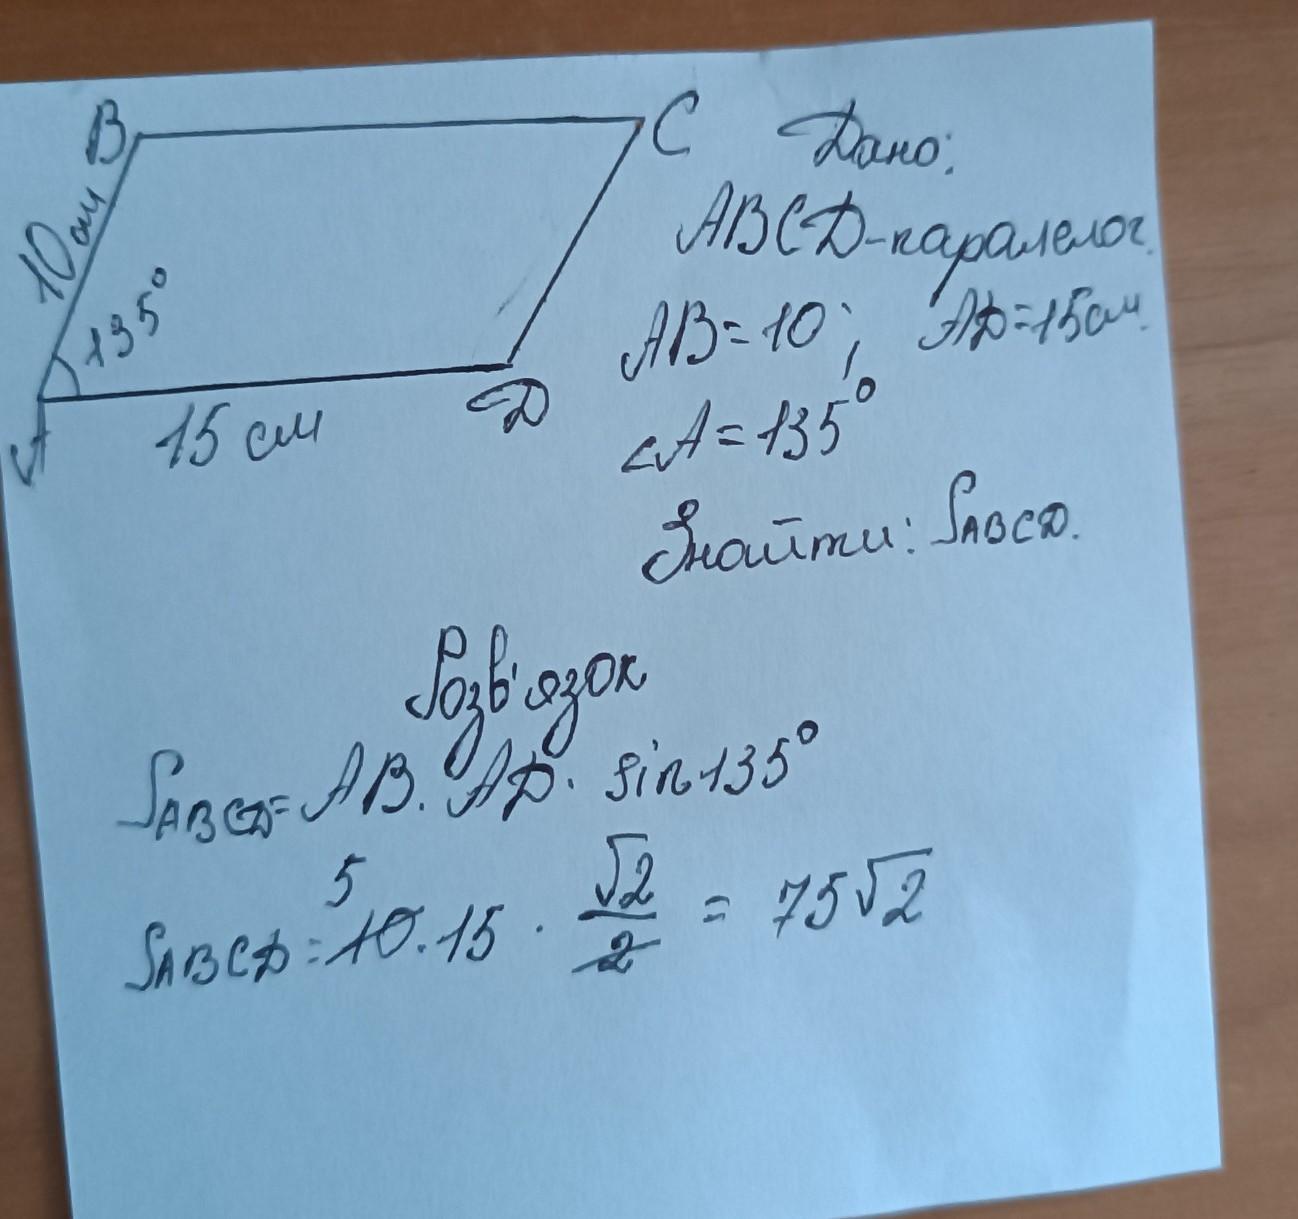 B
C
10см
135°
A
15 см
D
Дано:
ABCD-паралелог.
AB=10; AD=15см.
∠A=135°
Знайти: SABCD.
Розв'язок
SABCD=AB·AD·sin135°
5
SABCD=10·15·√2/2=75√2